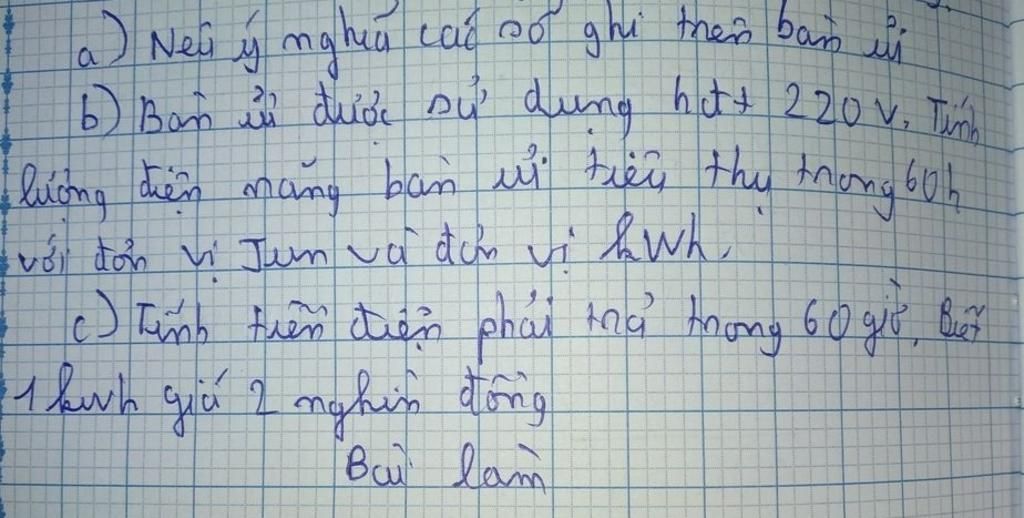 a) Nêu ý nghĩa các số ghi trên bàn ủi
b) Bàn ủi được sử dụng hđt 220V. Tính
lượng điện năng bàn ủi tiêu thụ trong 60h
với đơn vị Jun và đơn vị kWh.
c) Tính tiền điện phải trả trong 60 giờ. Biết
1 kWh giá 2 nghìn đồng
Bài làm